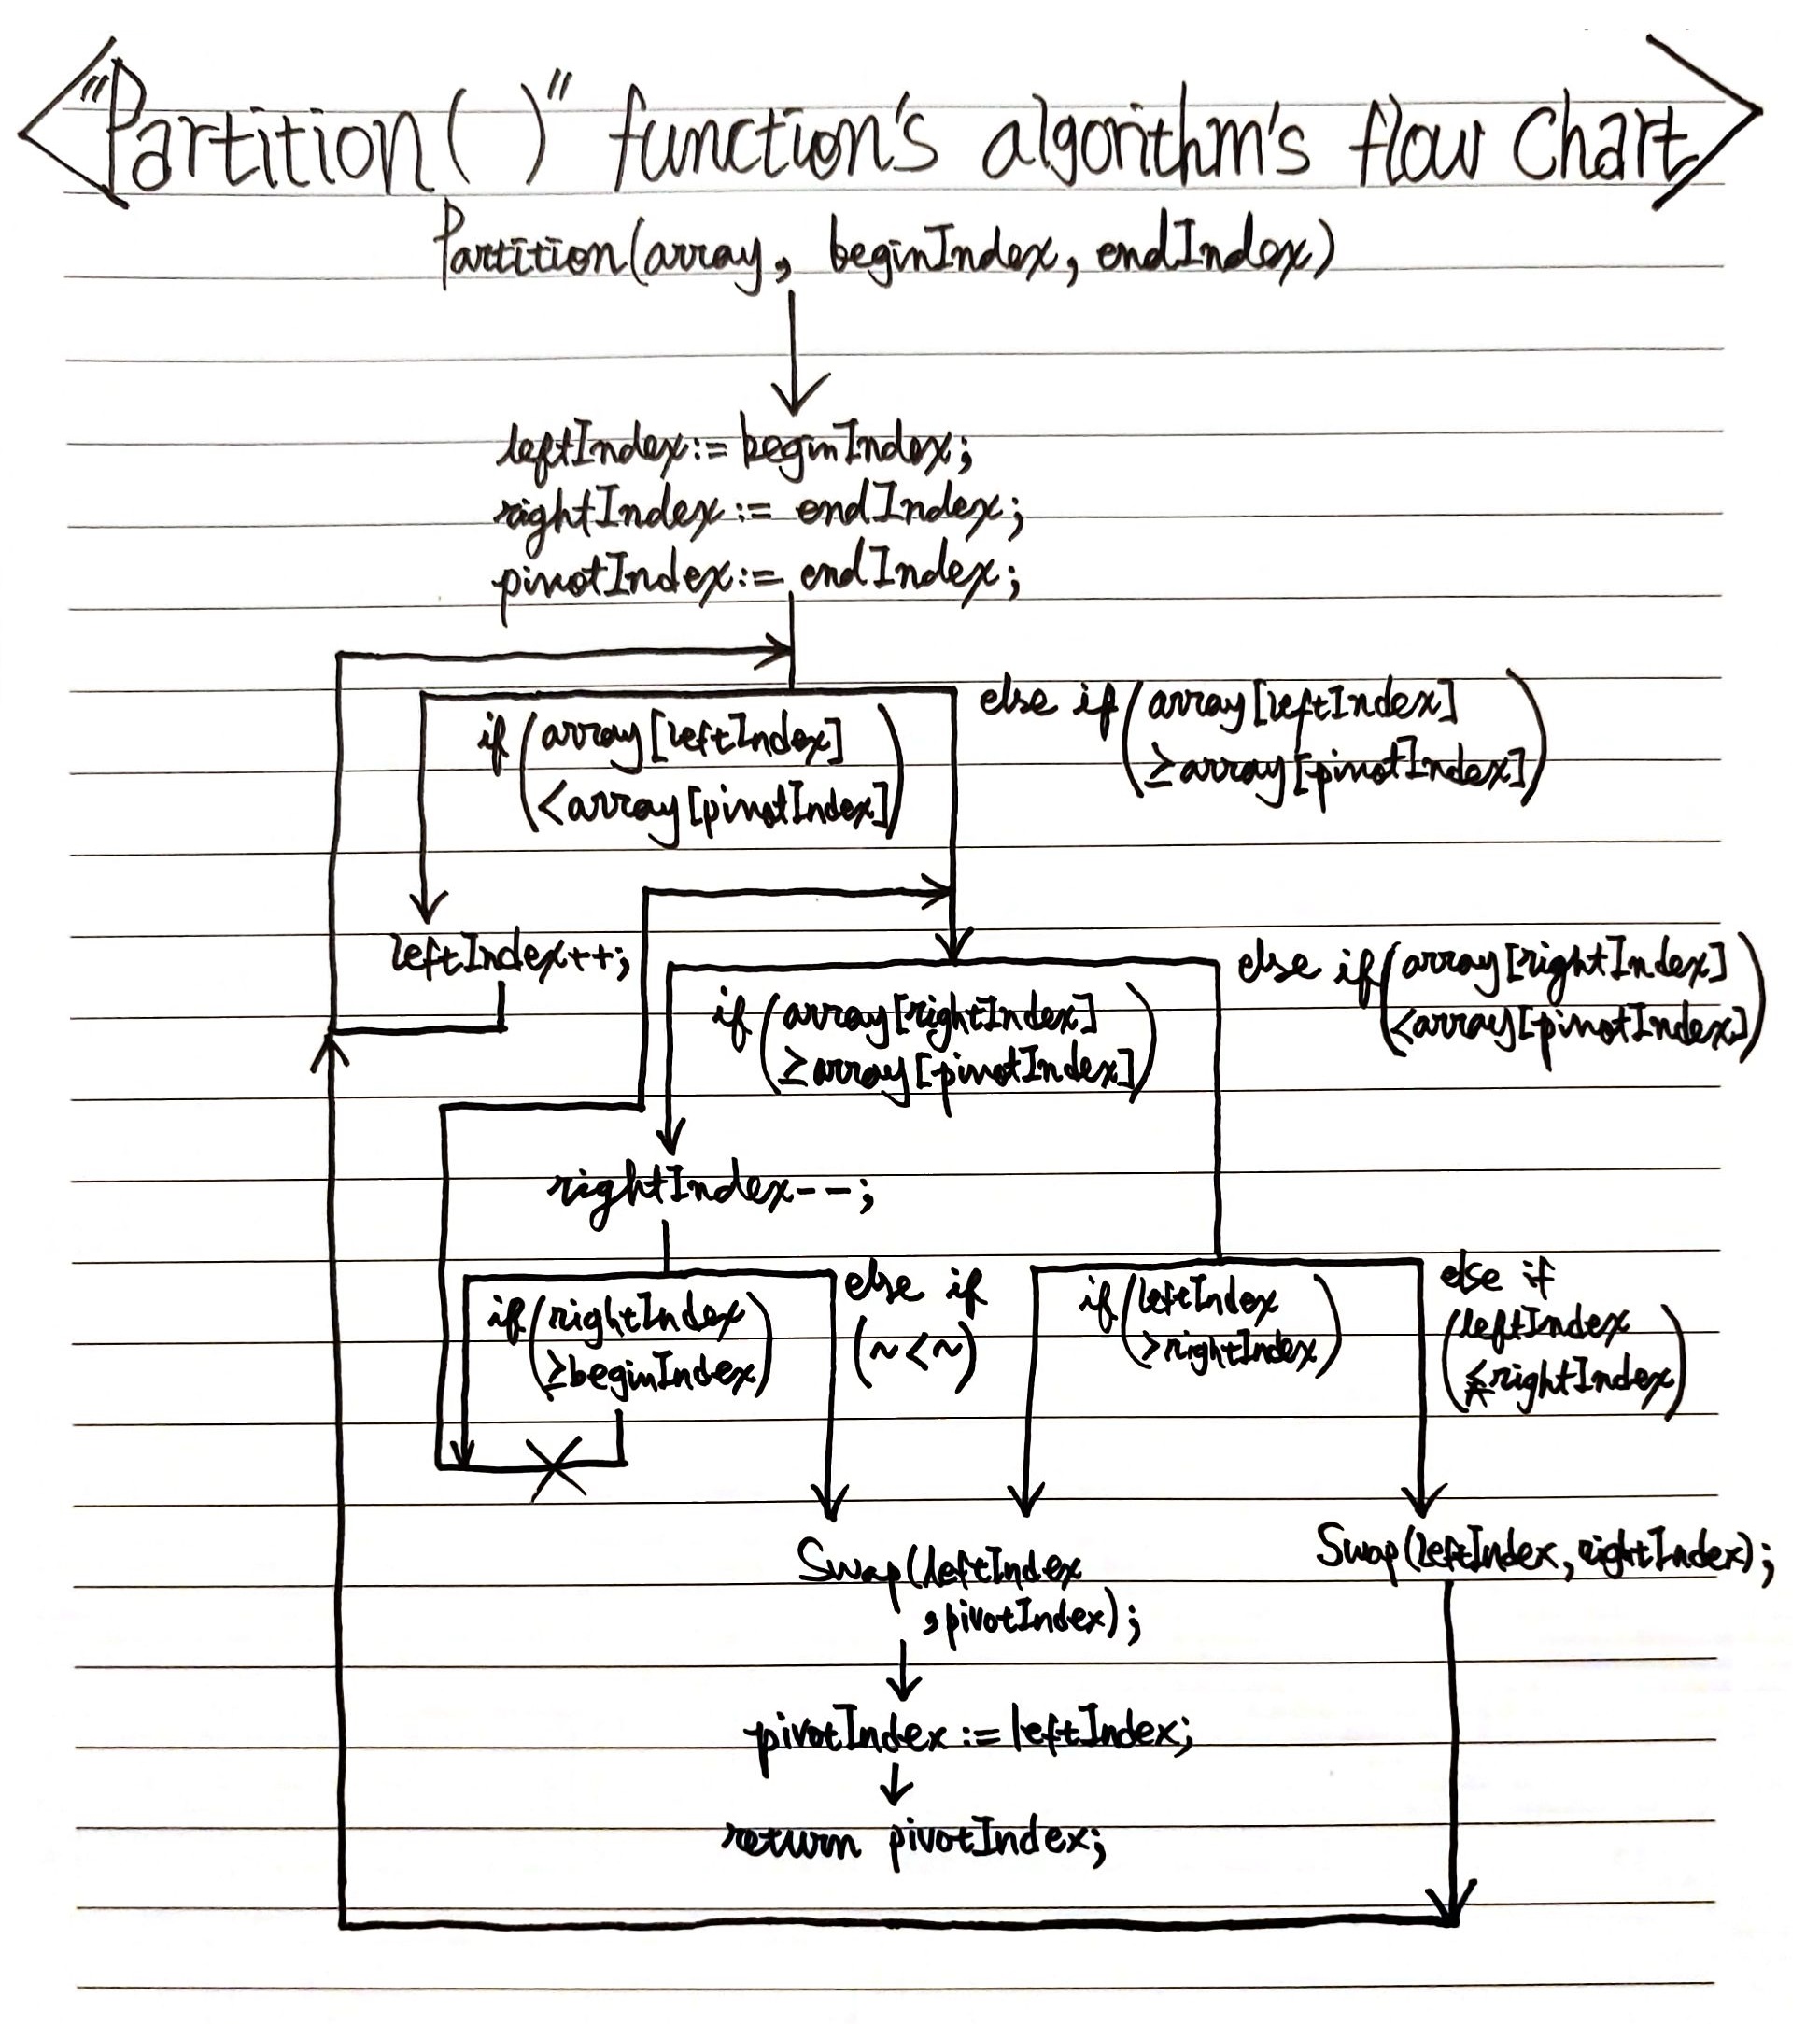 <"Partition( )" function's algorithm's flow Chart>
Partition(array, beginIndex, endIndex)
leftIndex:= beginIndex;
rightIndex:= endIndex;
pivotIndex:= endIndex;
if (array[leftIndex]
<array[pivotIndex])
else if (array[leftIndex]
≥array[pivotIndex])
leftIndex++;
if (array[rightIndex]
≥array[pivotIndex])
else if (array[rightIndex]
<array[pivotIndex])
rightIndex--;
if (rightIndex
≥beginIndex)
else if
(~<~)
if (leftIndex
>rightIndex)
else if
(leftIndex
≤rightIndex)
Swap(leftIndex
,pivotIndex);
Swap(leftIndex,rightIndex);
pivotIndex:= leftIndex;
return pivotIndex;